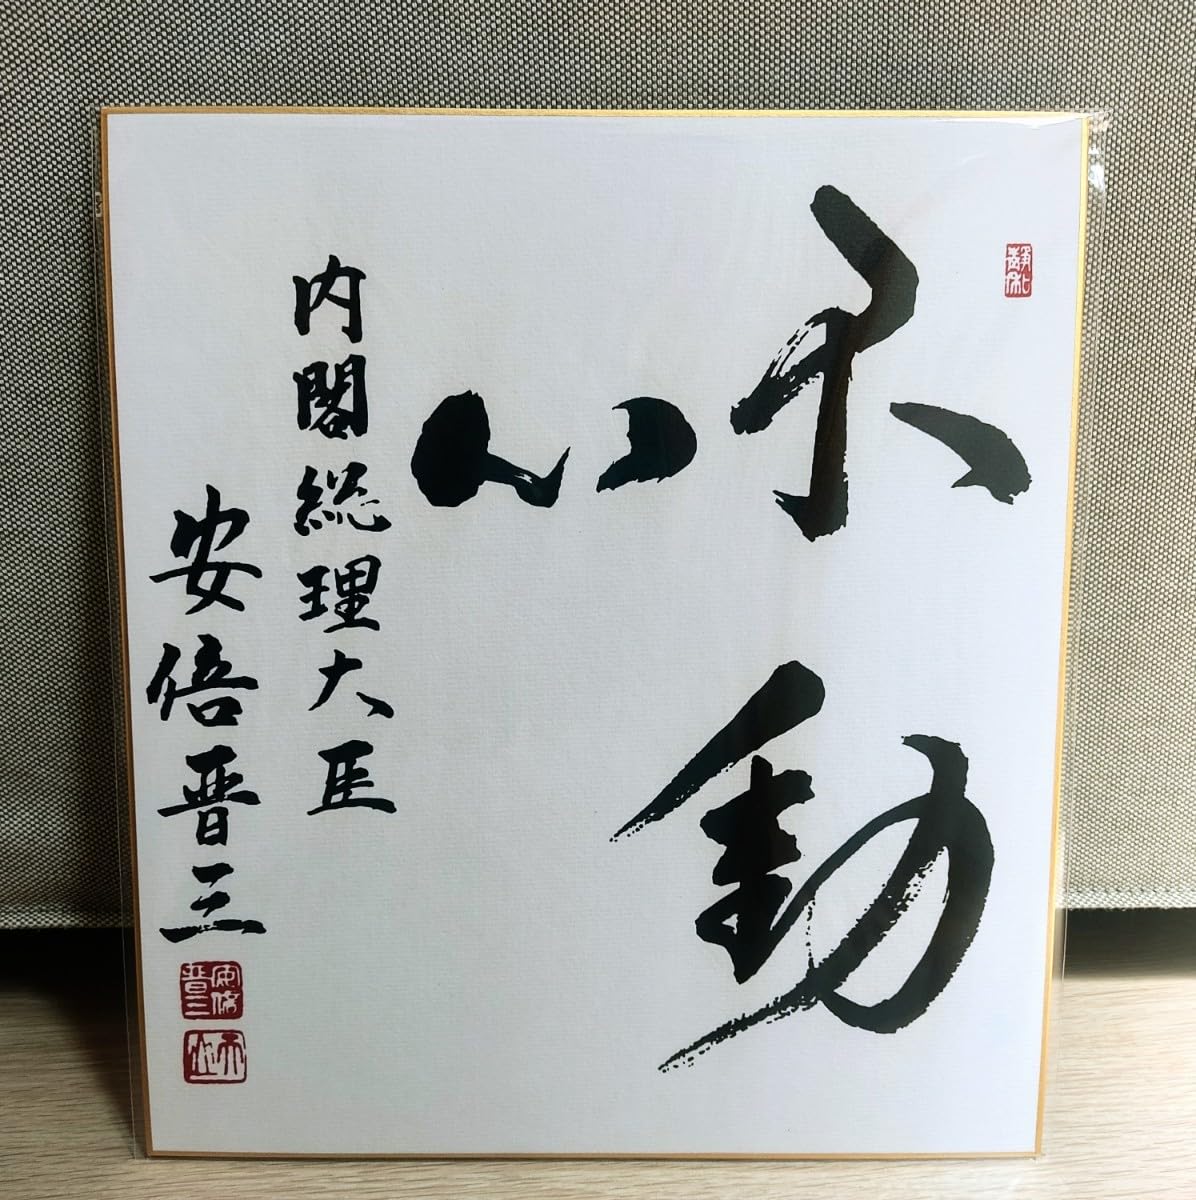 不動
心
内閣総理大臣
安倍晋三
安倍晋三